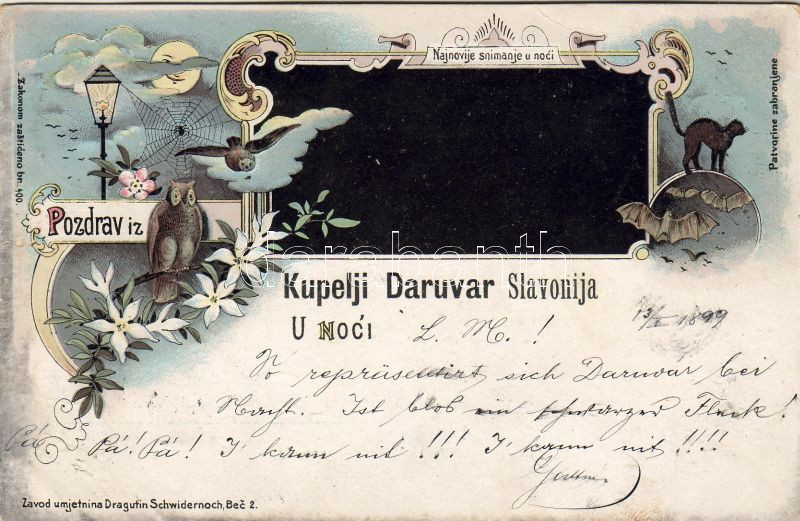 Najnovije snimanje u noći
"Zakonom zaštićeno br. 400.
Patvorine zabranjene
Pozdrav iz
darabanth
Kupelji Daruvar Slavonija
U Noći
L. M. !
13/ 1899
So repräsentirt sich Daruvar bei
Nacht. Ist blos ein schwarzer Fleck!
Pá Pá! Pá! I kann nit !!! I kann nit !!!!
Zavod umjetnina Dragutin Schwidernoch, Beč 2.